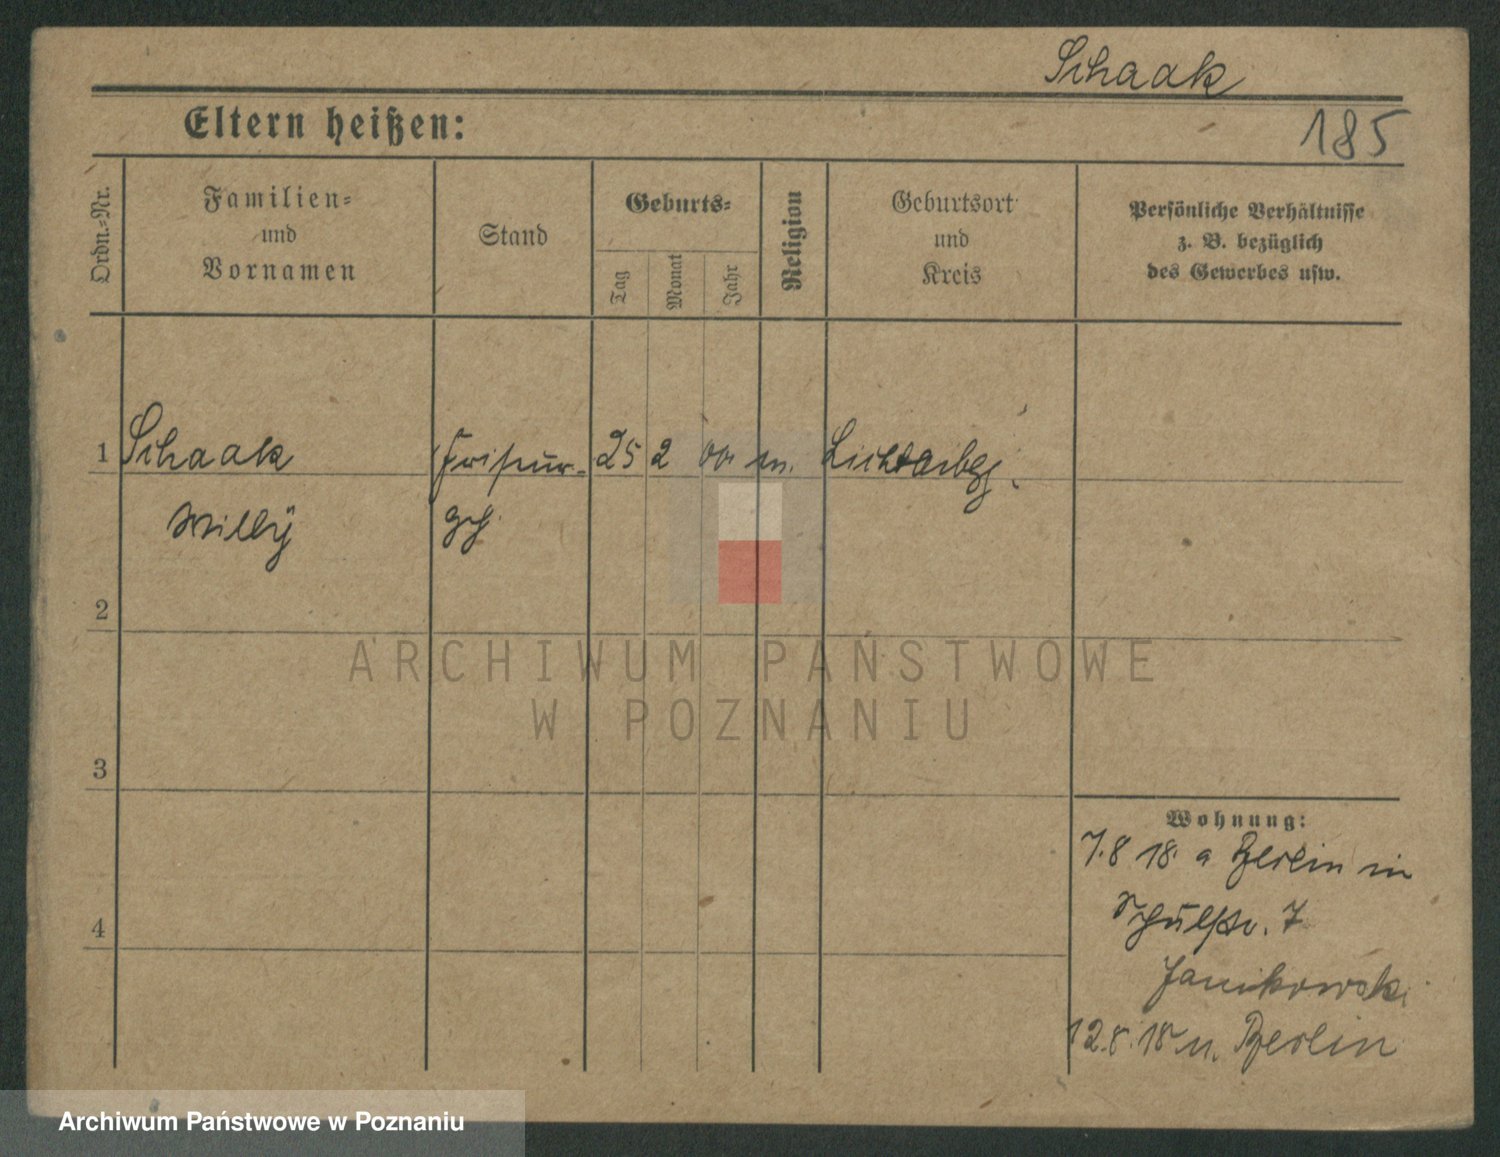 Schaak
Eltern heißen:
185
Ordn.-Nr.
Familien-
und
Vornamen
Stand
Geburts-
Tag
Monat
Jahr
Religion
Geburtsort
und
Kreis
Persönliche Verhältnisse
z. B. bezüglich
des Gewerbes usw.
1 Schaak Friseur- 25 2 00
Willy
2
3
4
Wohnung:
7.8 18. a Berlin in
Schulstr. 7
Janikowski
12.8.18 n. Berlin
ARCHIWUM PAŃSTWOWE
W POZNANIU
Archiwum Państwowe w Poznaniu